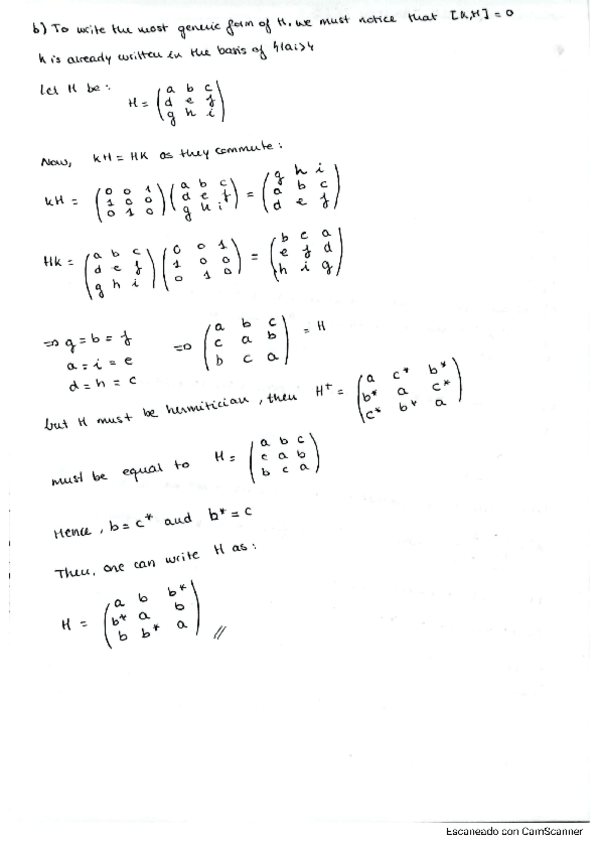 b) To write the most generic form of H, we must notice that [K,H] = 0
K is already written in the basis of {|ai>}
Let H be:
H = (a b c
d e f
g h i)
Now, KH = HK as they commute:
KH = (0 0 1
1 0 0
0 1 0) (a b c
d e f
g h i) = (g h i
a b c
d e f)
HK = (a b c
d e f
g h i) (0 0 1
1 0 0
0 1 0) = (b c a
e f d
h i g)
=> g = b = f
a = i = e
d = h = c
=> (a b c
c a b
b c a) = H
but H must be hermitician, then H† = (a c* b*
b* a c*
c* b* a)
must be equal to H = (a b c
c a b
b c a)
Hence, b = c* and b* = c
Then, one can write H as:
H = (a b b*
b* a b
b b* a) //
Escaneado con CamScanner